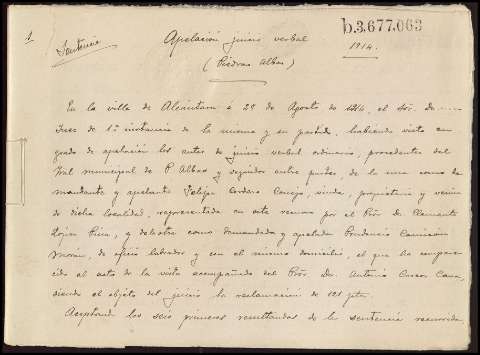 1
Sentencia
Apelación juicio verbal
(Piedras Albas)
b.3.677.063
1914.
En la villa de Alcántara á 28 de Agosto de 1914, el Sor. Dn.
Juez de 1ª instancia de la misma y su partido, habiendo visto en
grado de apelación los autos de juicio verbal ordinario, procedentes del
Tral municipal de P. Albas y seguidos entre partes, de la una como de
mandante y apelante Felipa Cordero Conejo, viuda, propietaria y vecina
de dicha localidad, representada en este recurso por el Pror D. Clemente
López, y de la otra como demandada y apelada Prudencio
Morán, de oficio labrador y con el mismo domicilio, el que ha compare
cido al acto de la vista acompañado del Pror. Dn. Antonio
siendo el objeto del juicio la reclamación de 121 pts.
Aceptando los seis primeros resultandos de la sentencia recurrida